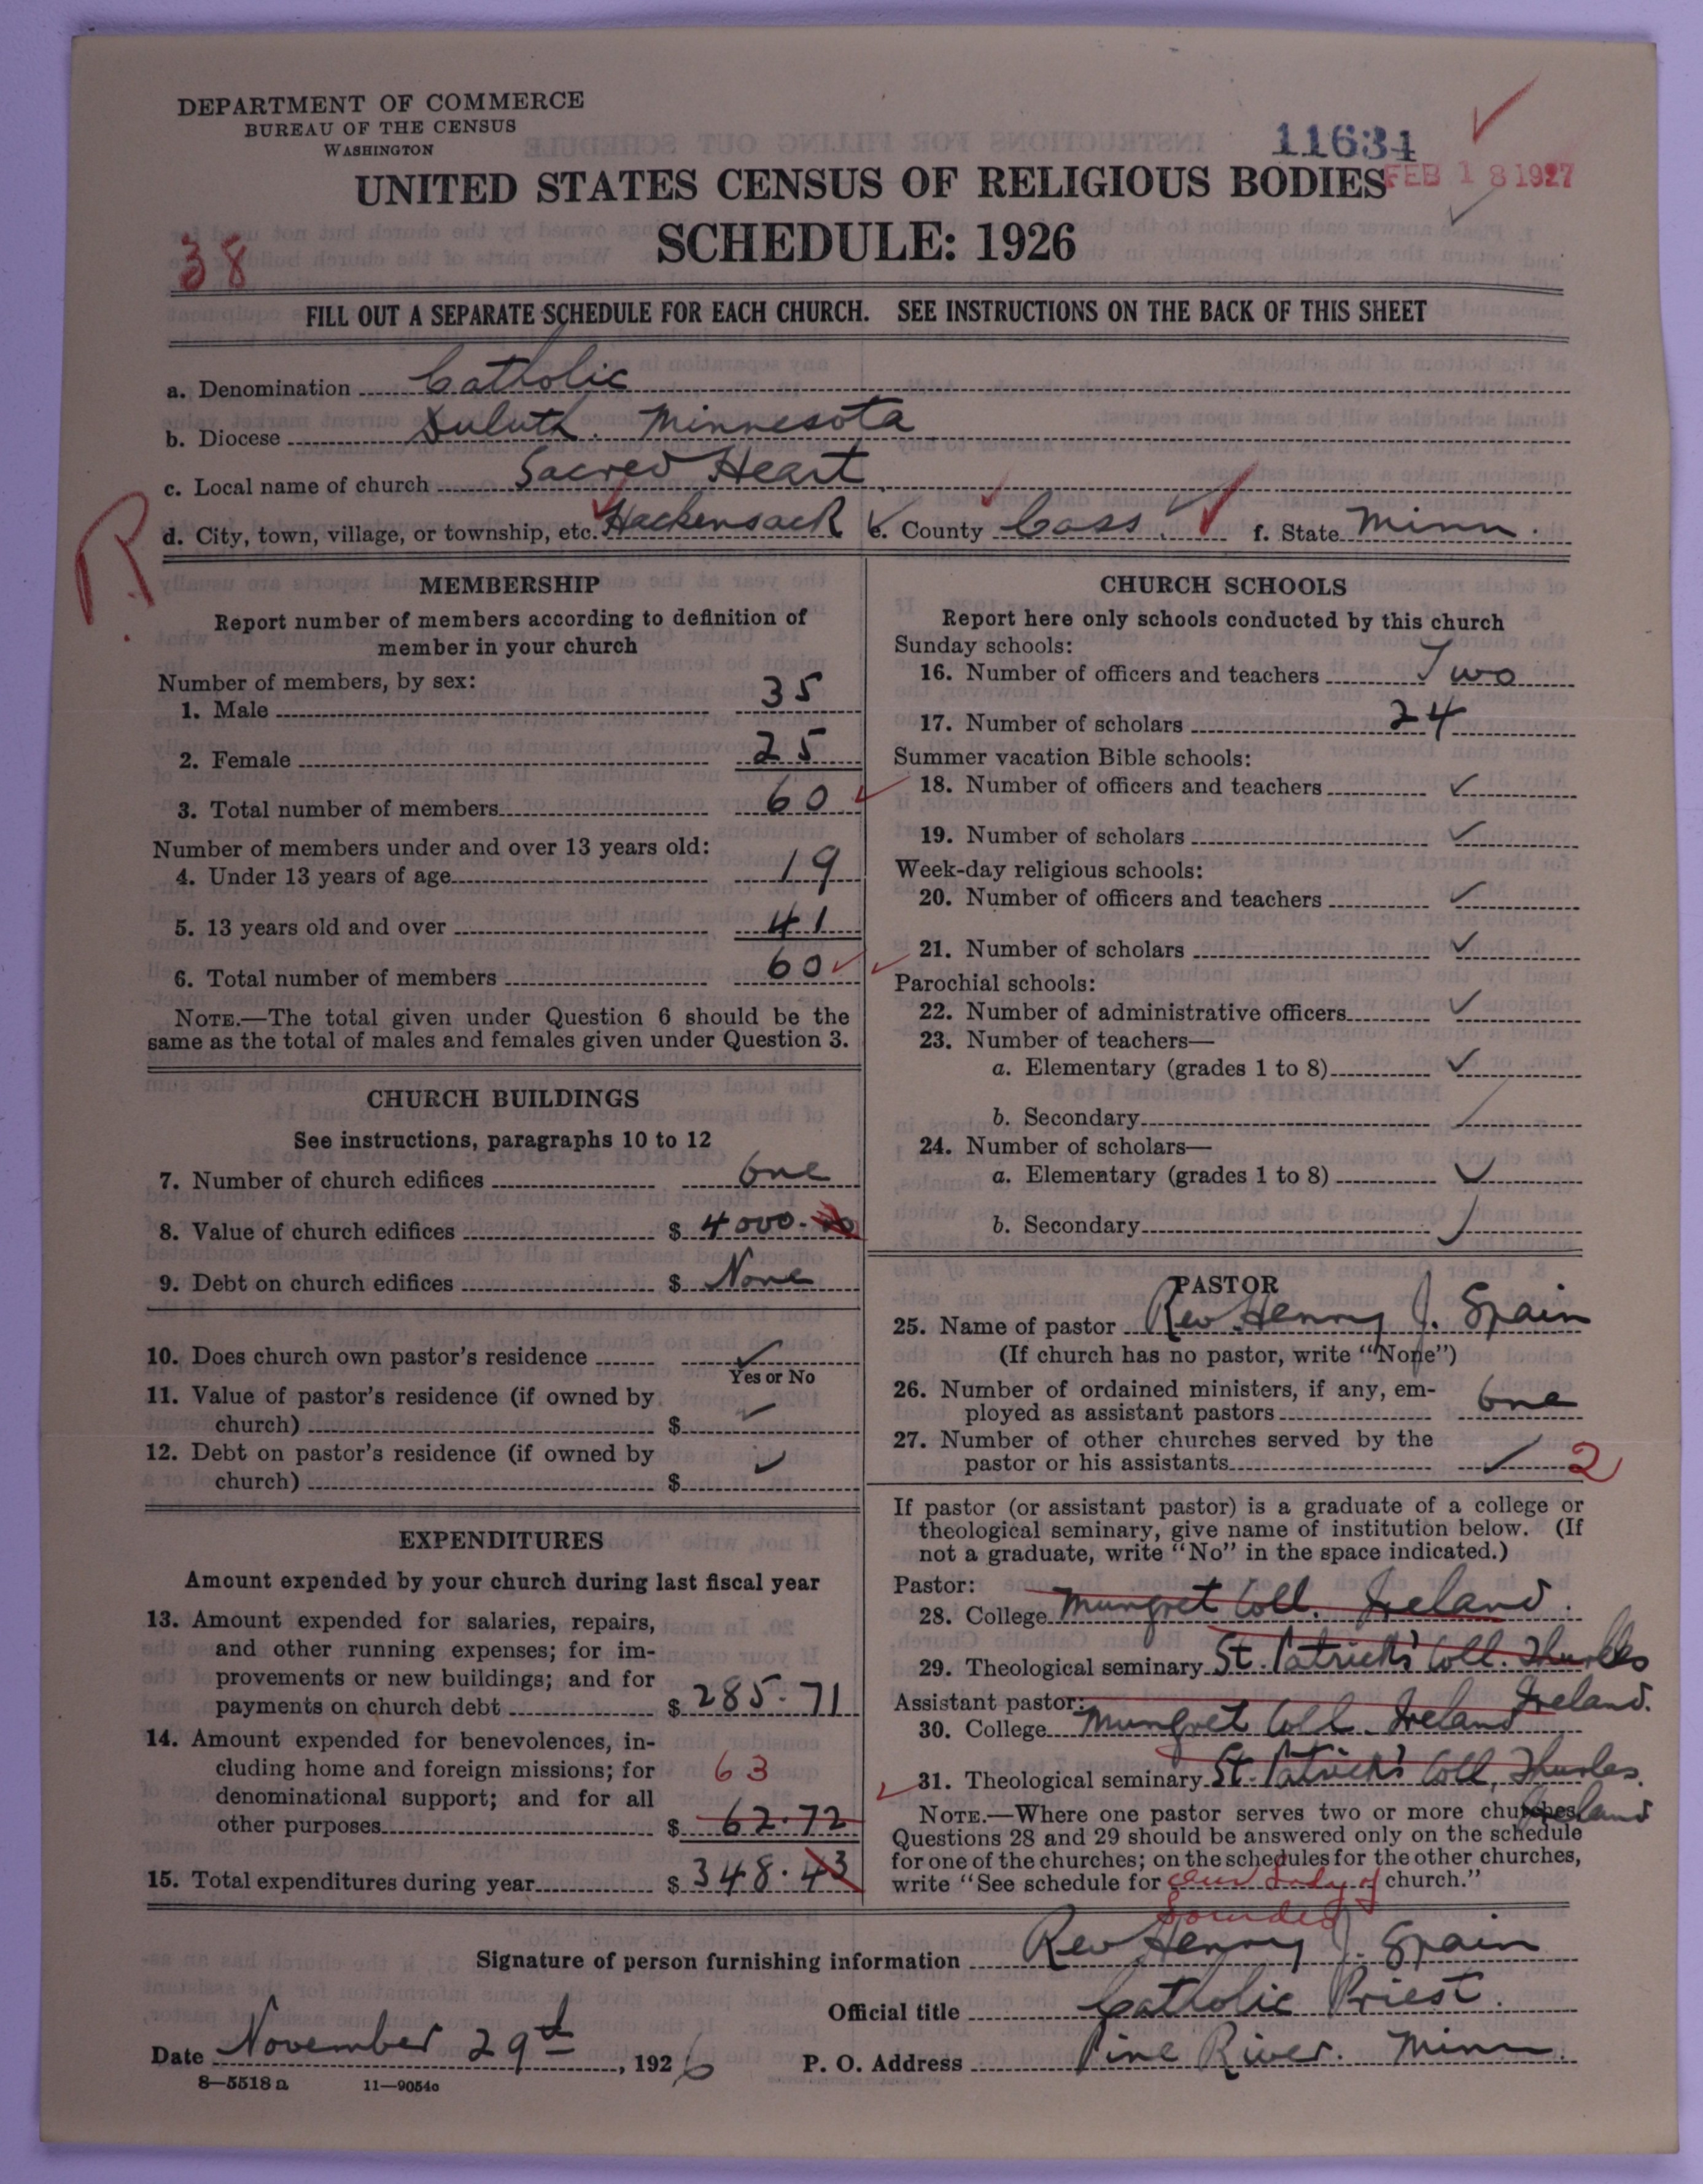 DEPARTMENT OF COMMERCE
BUREAU OF THE CENSUS
WASHINGTON
11634
FEB 18 1927
UNITED STATES CENSUS OF RELIGIOUS BODIES
SCHEDULE: 1926
38
FILL OUT A SEPARATE SCHEDULE FOR EACH CHURCH. SEE INSTRUCTIONS ON THE BACK OF THIS SHEET
a. Denomination Catholic
b. Diocese Duluth. Minnesota
c. Local name of church Sacred Heart
d. City, town, village, or township, etc. Hackensack e. County Cass. f. State Minn.
MEMBERSHIP
Report number of members according to definition of
member in your church
Number of members, by sex:
1. Male 35
2. Female 25
3. Total number of members 60
Number of members under and over 13 years old:
4. Under 13 years of age 19
5. 13 years old and over 41
6. Total number of members 60
NOTE.—The total given under Question 6 should be the
same as the total of males and females given under Question 3.
CHURCH BUILDINGS
See instructions, paragraphs 10 to 12
7. Number of church edifices One
8. Value of church edifices $ 4000.00
9. Debt on church edifices $ None
10. Does church own pastor's residence ✓
Yes or No
11. Value of pastor's residence (if owned by
church) $ ✓
12. Debt on pastor's residence (if owned by
church) $ ✓
EXPENDITURES
Amount expended by your church during last fiscal year
13. Amount expended for salaries, repairs,
and other running expenses; for im-
provements or new buildings; and for
payments on church debt $ 285.71
14. Amount expended for benevolences, in-
cluding home and foreign missions; for 63
denominational support; and for all
other purposes $ 62.72
15. Total expenditures during year $ 348.43
CHURCH SCHOOLS
Report here only schools conducted by this church
Sunday schools:
16. Number of officers and teachers Two
17. Number of scholars 24
Summer vacation Bible schools:
18. Number of officers and teachers ✓
19. Number of scholars ✓
Week-day religious schools:
20. Number of officers and teachers ✓
21. Number of scholars ✓
Parochial schools:
22. Number of administrative officers ✓
23. Number of teachers—
a. Elementary (grades 1 to 8) ✓
b. Secondary ✓
24. Number of scholars—
a. Elementary (grades 1 to 8) ✓
b. Secondary ✓
PASTOR
25. Name of pastor Rev. Henry J. Spain
(If church has no pastor, write "None")
26. Number of ordained ministers, if any, em-
ployed as assistant pastors One
27. Number of other churches served by the
pastor or his assistants ✓ 2
If pastor (or assistant pastor) is a graduate of a college or
theological seminary, give name of institution below. (If
not a graduate, write "No" in the space indicated.)
Pastor:
28. College Mungret Coll. Ireland.
29. Theological seminary St. Patrick's Coll. Thurles
Ireland.
Assistant pastor:
30. College Mungret Coll. Ireland
31. Theological seminary St. Patrick's Coll, Thurles.
Ireland
NOTE.—Where one pastor serves two or more churches,
Questions 28 and 29 should be answered only on the schedule
for one of the churches; on the schedules for the other churches,
write "See schedule for Our Lady of church."
Lourdes
Signature of person furnishing information Rev Henry J. Spain
Official title Catholic Priest.
Date November 29th, 1926 P. O. Address Pine River. Minn.
8—5518a 11—9054c